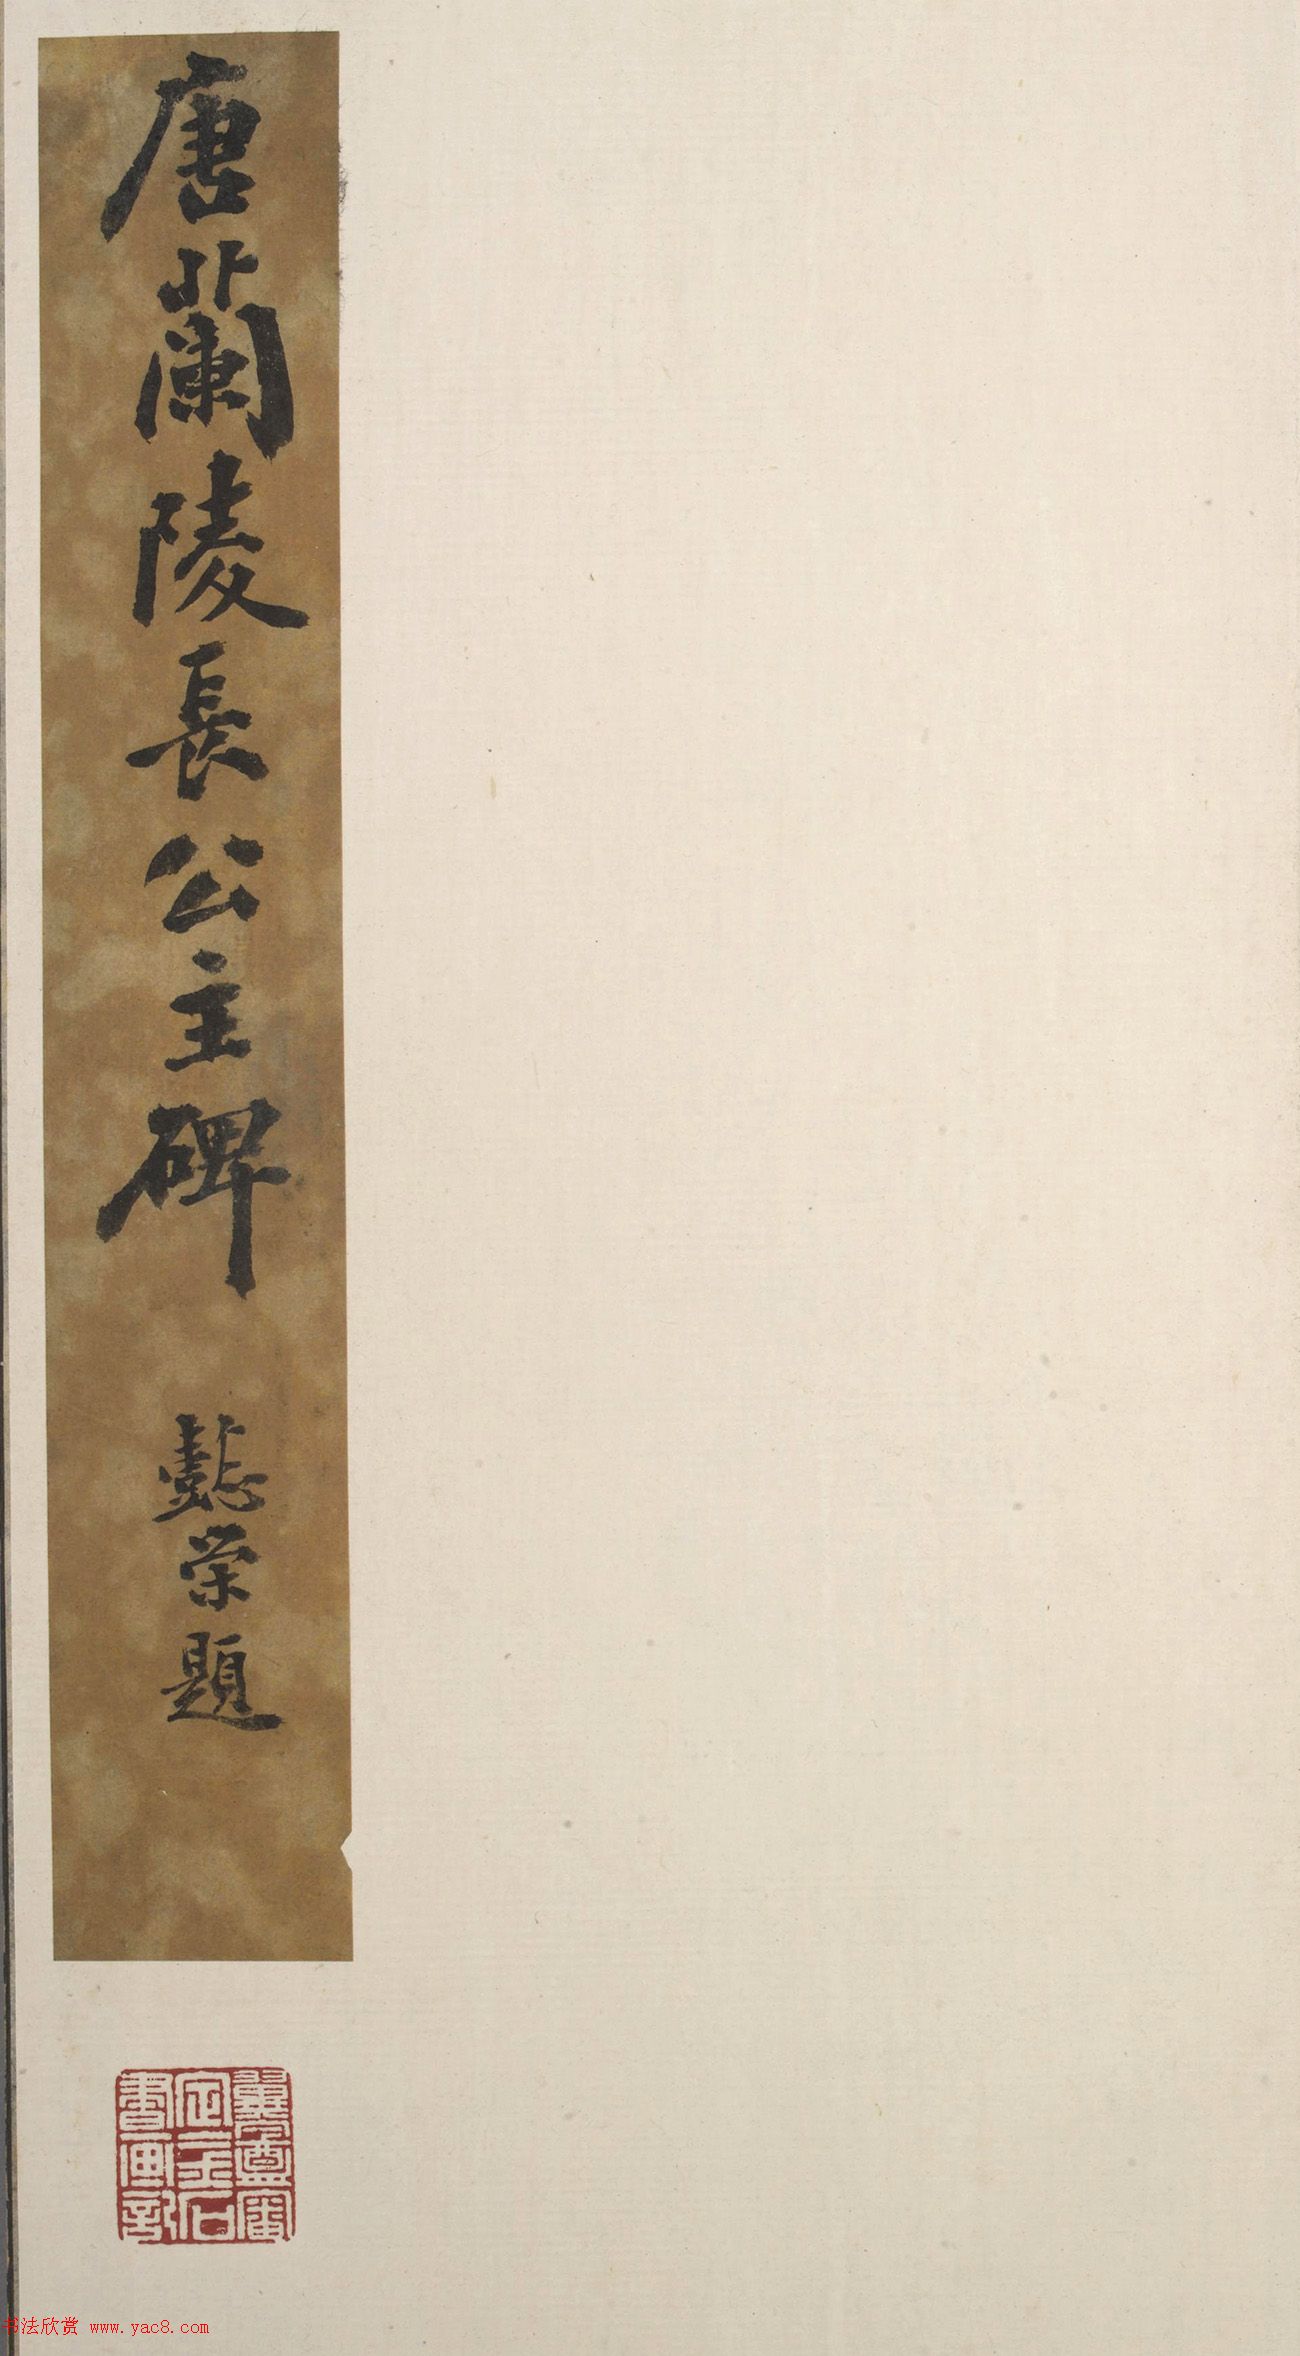 唐蘭陵長公主碑
懿榮題
書法欣赏 www.yac8.com